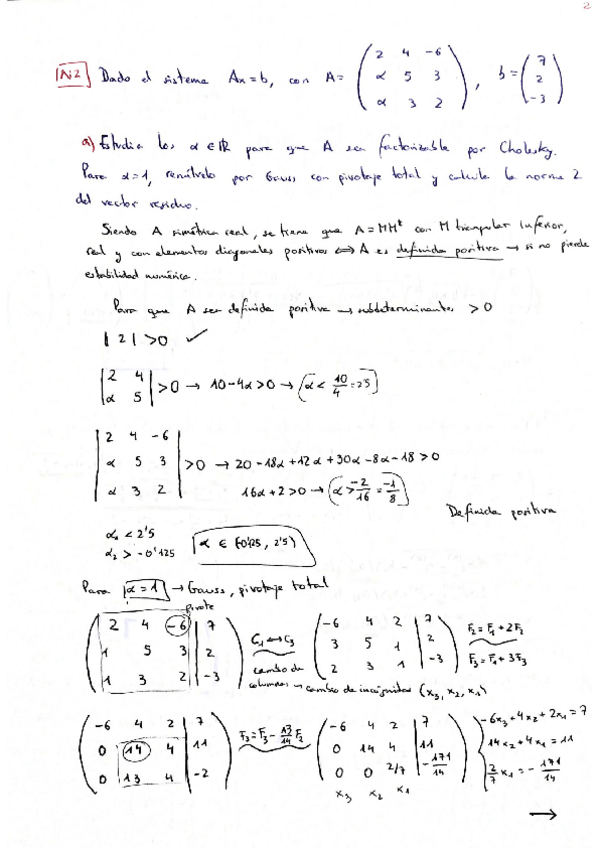 2
N2 Dado el sistema Ax=b, con A= ( 2 4 -6 ; α 5 3 ; α 3 2 ), b= ( 7 ; 2 ; -3 )
a) Estudia los α ∈ ℝ para que A sea factorizable por Cholesky.
Para α=1, resuélvelo por Gauss con pivotaje total y calcula la norma 2
del vector residuo.
Siendo A simétrica real, se tiene que A=MMᵗ con M triangular inferior,
real y con elementos diagonales positivos ⟺ A es definida positiva → si no pierde
estabilidad numérica.
Para que A sea definida positiva → subdeterminantes >0
|2| >0 ✓
| 2 4 ; α 5 | >0 → 10-4α >0 → α < 10/4 = 2'5
| 2 4 -6 ; α 5 3 ; α 3 2 | >0 → 20-18α+12α+30α-8α-18 >0
16α+2 >0 → α > -2/16 = -1/8
Definida positiva
α₁ < 2'5
α₂ > -0'125
α ∈ (-0'125, 2'5)
Para α=1 → Gauss, pivotaje total
pivote
( 2 4 -6 | 7 ; 1 5 3 | 2 ; 1 3 2 | -3 ) C₁ ↔ C₃ ( -6 4 2 | 7 ; 3 5 1 | 2 ; 2 3 1 | -3 ) F₂=F₁+2F₂ F₃=F₁+3F₃
cambio de
columnas → cambio de incógnitas (x₃, x₂, x₁)
( -6 4 2 | 7 ; 0 14 4 | 11 ; 0 13 4 | -2 ) F₃=F₃-13/14 F₂ ( -6 4 2 | 7 ; 0 14 4 | 11 ; 0 0 2/7 | -171/14 ) { -6x₃+4x₂+2x₁=7 ; 14x₂+4x₁=11 ; 2/7 x₁=-171/14
x₃ x₂ x₁
→